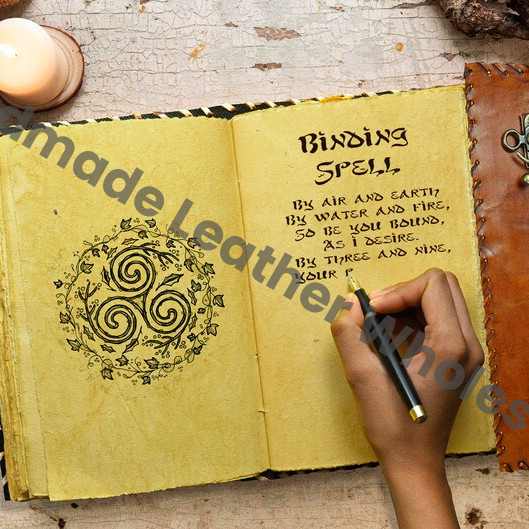 Binding
Spell
By air and earth
By water and fire,
So be you bound,
As I desire.
By three and nine,
Your
Handmade Leather Wholes